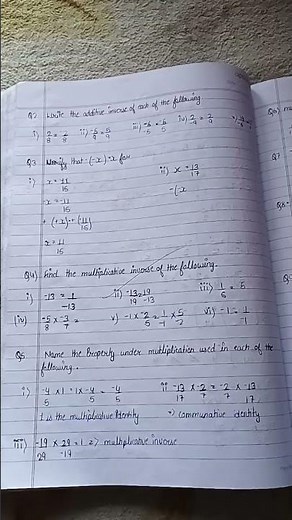 Q2. Write the additive inverse of each of the following
i) 2/8 = -2/8 ii) -5/9 = 5/9 iii) -6/-5 = 6/5 iv) 2/-9 = 2/9
Q3 Verify that -(-x) = x for
i) x = 11/15 ii) x = -13/17
x = 11/15 -(x
x = 11/15
Q4) Find the multiplicative inverse of the following.
i) -13 = 1/-13 ii) -13/19 = 19/-13 iii) 1/5 = 5
(iv) -5/8 × -3/7 = v) -1 × -2/5 = 1/-1 × 5/-2 vi) -1 = 1/-1
Q5 Name the Property under multiplication used in each of the
following.
i) -4/5 × 1 = 1 × -4/5 = -4/5 ii -13/17 × -2/7 = -2/7 × -13/17
1 is the multiplicative Identity => commutative identity
iii) -19/29 × 29/-19 = 1 => multiplicative inverse
Q7
Q8